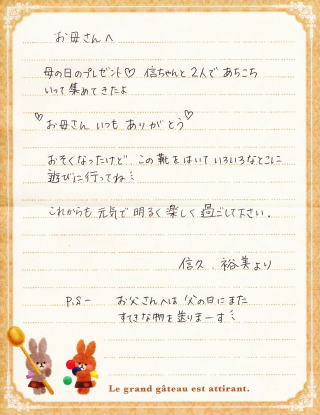 お母さんへ
母の日のプレゼント♡ 信ちゃんと2人であちこち
いって集めてきたよ
♡お母さん いつも ありがとう♡
おそくなったけど、この靴をはいていろいろなとこに
遊びに行ってね
これからも 元気で 明るく 楽しく 過ごして下さい。
信久、裕美より
P.S- お父さんへは 父の日にまた
すてきな物を送りまーす
Le grand gâteau est attirant.